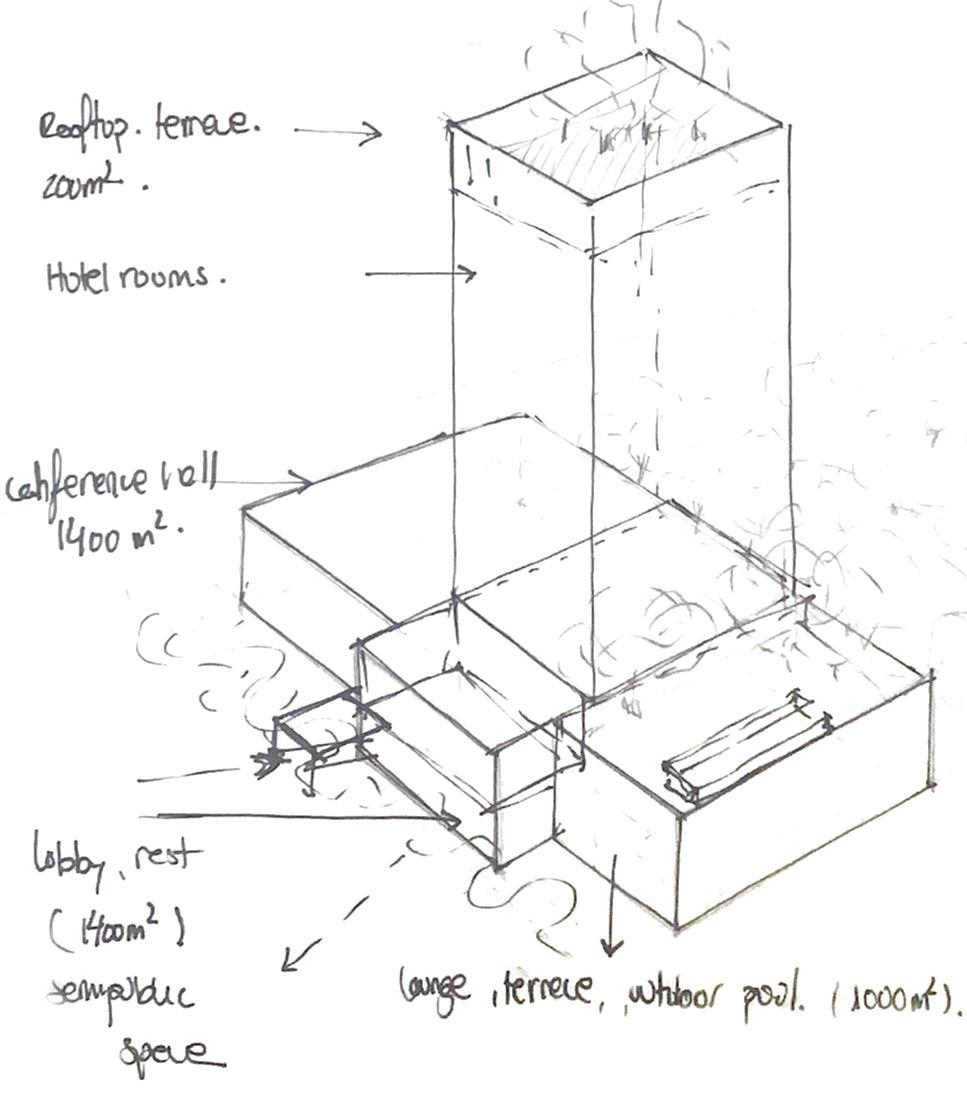 Rooftop. terrace.
200m².
Hotel rooms.
Conference hall
1400 m².
lobby, rest
(1400m²)
semipublic
space
lounge, terrece, outdoor pool. (1000m²).